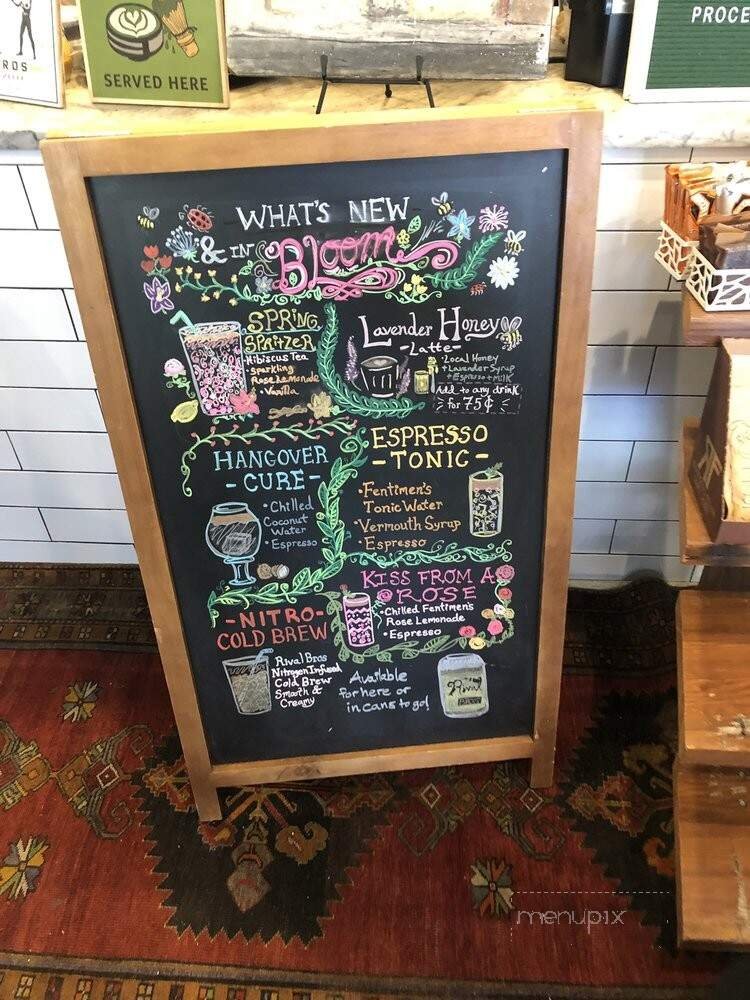 ROS
SERVED HERE
PROCE
WHAT'S NEW
& IN Bloom
SPRING
SPRITZER
Hibiscus Tea
• Sparkling
Rose Lemonade
• Vanilla
Lavender Honey
- Latte -
• Local Honey
+ Lavender Syrup
+ Espresso + Milk
Add to any drink
for 75¢
HANGOVER
- CURE -
• Chilled
Coconut
Water
• Espresso
ESPRESSO
- TONIC -
• Fentimen's
Tonic Water
• Vermouth Syrup
• Espresso
KISS FROM A
ROSE
• Chilled Fentimen's
Rose Lemonade
• Espresso
- NITRO -
COLD BREW
Rival Bros
Nitrogen Infused
Cold Brew
Smooth &
Creamy
Available
for here or
in cans to go!
Rival
menupix